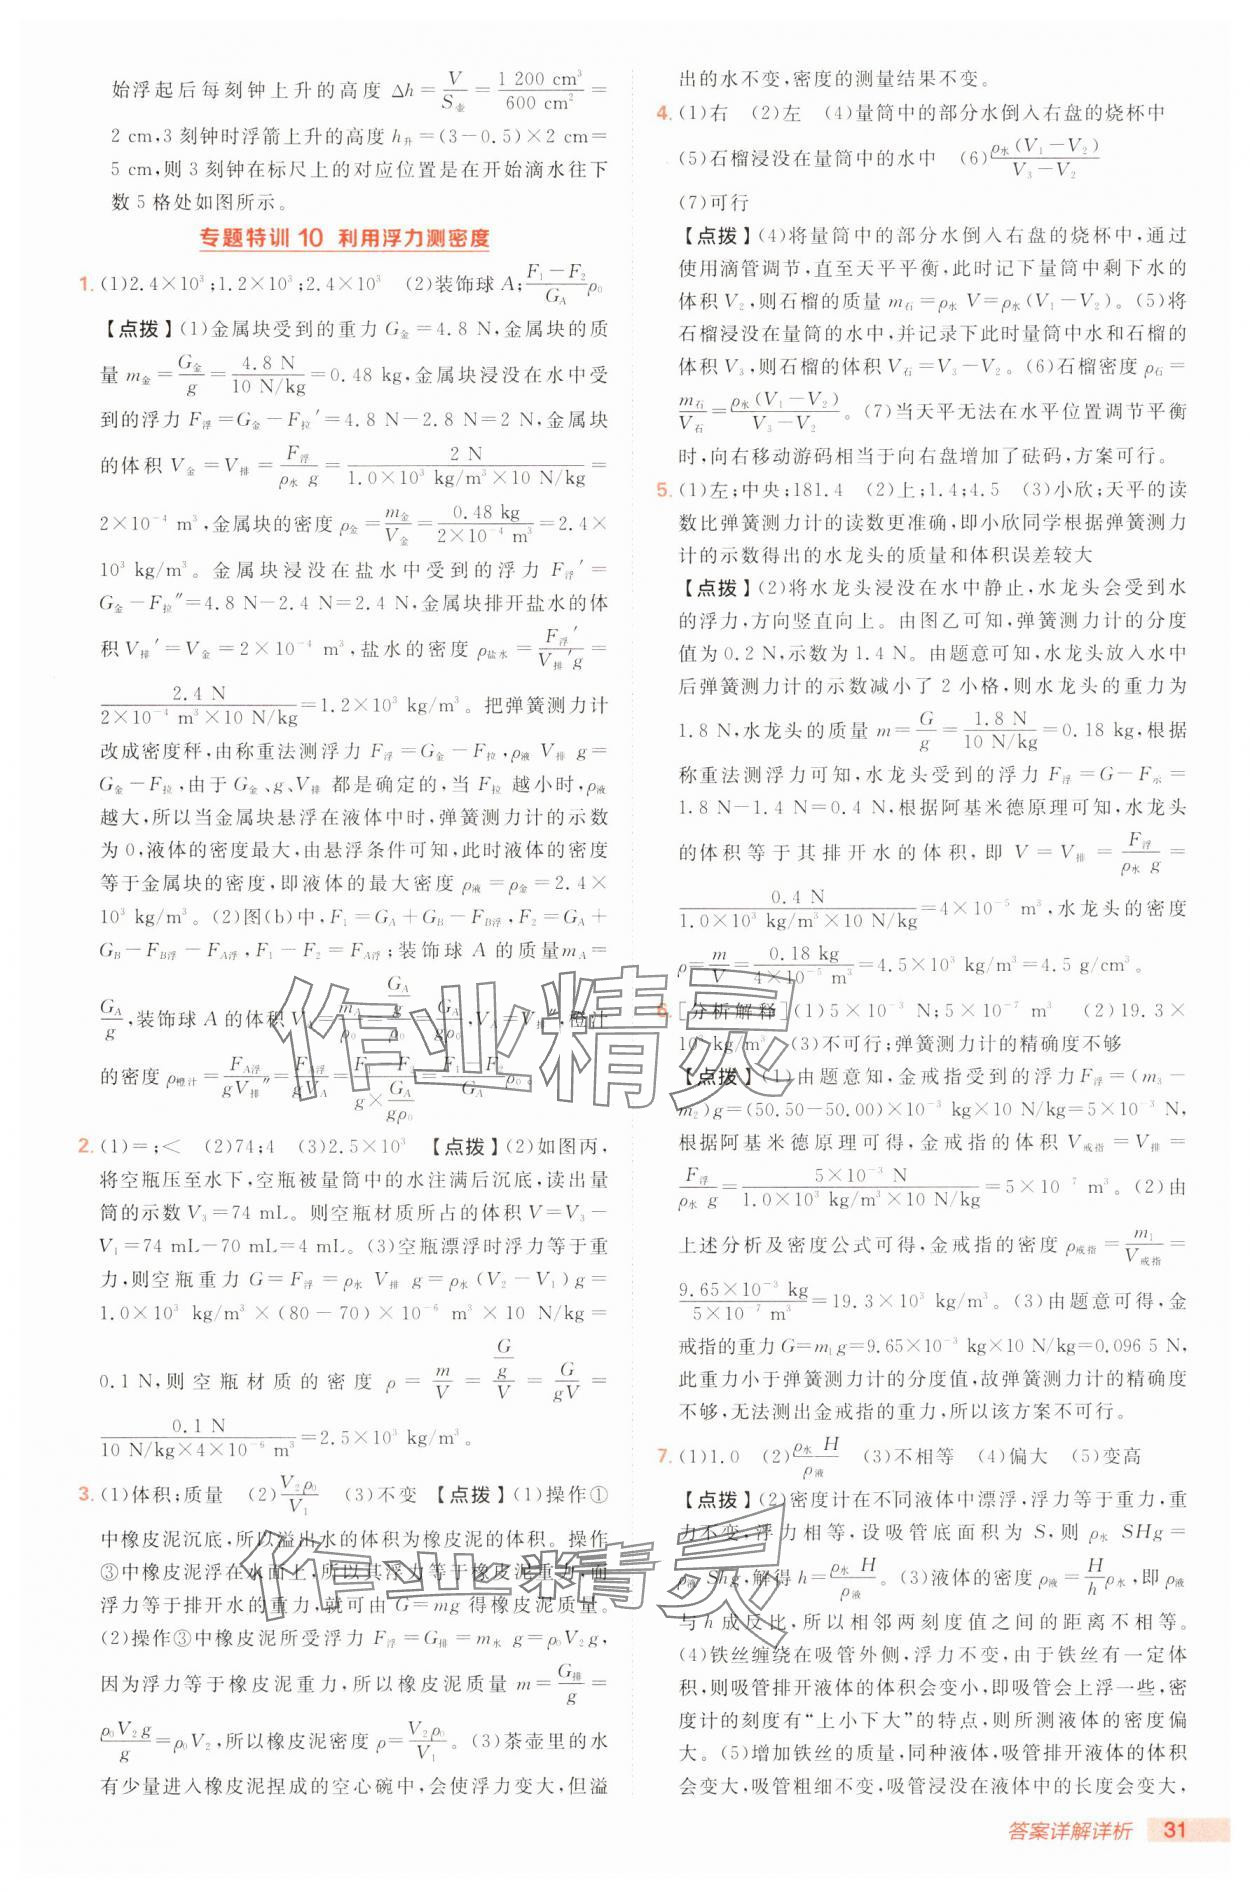 始浮起后每刻钟上升的高度 Δh=V/S壶=1 200 cm³/600 cm²=
2 cm,3 刻钟时浮箭上升的高度 h升=(3-0.5)×2 cm=
5 cm,则 3 刻钟在标尺上的对应位置是在开始滴水往下
数 5 格处如图所示。
专题特训 10 利用浮力测密度
1. (1)2.4×10³;1.2×10³;2.4×10³ (2)装饰球 A;(F₁-F₂)/G_A ρ₀
【点拨】(1)金属块受到的重力 G金=4.8 N,金属块的质
量 m金=G金/g=4.8 N/10 N/kg=0.48 kg,金属块浸没在水中受
到的浮力 F浮=G金-F拉′=4.8 N-2.8 N=2 N,金属块
的体积 V金=V排=F浮/ρ水 g=2 N/1.0×10³ kg/m³×10 N/kg=
2×10⁻⁴ m³,金属块的密度 ρ金=m金/V金=0.48 kg/2×10⁻⁴ m³=2.4×
10³ kg/m³。金属块浸没在盐水中受到的浮力 F浮′=
G金-F拉″=4.8 N-2.4 N=2.4 N,金属块排开盐水的体
积 V排′=V金=2×10⁻⁴ m³,盐水的密度 ρ盐水=F浮′/V排′g=
2.4 N/2×10⁻⁴ m³×10 N/kg=1.2×10³ kg/m³。把弹簧测力计
改成密度秤,由称重法测浮力 F浮=G金-F拉,ρ液 V排 g=
G金-F拉,由于 G金、g、V排 都是确定的,当 F拉 越小时,ρ液
越大,所以当金属块悬浮在液体中时,弹簧测力计的示数
为 0,液体的密度最大,由悬浮条件可知,此时液体的密度
等于金属块的密度,即液体的最大密度 ρ液=ρ金=2.4×
10³ kg/m³。(2)图(b)中,F₁=G_A+G_B-F_B浮,F₂=G_A+
G_B-F_B浮-F_A浮,F₁-F₂=F_A浮;装饰球 A 的质量m_A=
G_A/g,装饰球 A 的体积 V_A=m_A/ρ₀=(G_A/g)/ρ₀=G_A/gρ₀,V_A=V排″,橙汁
的密度 ρ橙汁=F_A浮/gV排″=F_A浮/gV_A=(F₁-F₂)/(g×G_A/gρ₀)=(F₁-F₂)/G_A ρ₀。
2. (1)=;< (2)74;4 (3)2.5×10³ 【点拨】(2)如图丙,
将空瓶压至水下,空瓶被量筒中的水注满后沉底,读出量
筒的示数 V₃=74 mL。则空瓶材质所占的体积 V=V₃-
V₁=74 mL-70 mL=4 mL。(3)空瓶漂浮时浮力等于重
力,则空瓶重力 G=F浮=ρ水 V排 g=ρ水(V₂-V₁)g=
1.0×10³ kg/m³×(80-70)×10⁻⁶ m³×10 N/kg=
0.1 N,则空瓶材质的密度 ρ=m/V=(G/g)/V=G/gV=
0.1 N/10 N/kg×4×10⁻⁶ m³=2.5×10³ kg/m³。
3. (1)体积;质量 (2)V₂ρ₀/V₁ (3)不变 【点拨】(1)操作①
中橡皮泥沉底,所以溢出水的体积为橡皮泥的体积。操作
③中橡皮泥浮在水面上,所以其浮力等于橡皮泥重力,而
浮力等于排开水的重力,就可由 G=mg 得橡皮泥质量。
(2)操作③中橡皮泥所受浮力 F浮=G排=m水 g=ρ₀V₂g,
因为浮力等于橡皮泥重力,所以橡皮泥质量 m=G排/g=
ρ₀V₂g/g=ρ₀V₂,所以橡皮泥密度 ρ=V₂ρ₀/V₁。(3)茶壶里的水
有少量进入橡皮泥捏成的空心碗中,会使浮力变大,但溢
出的水不变,密度的测量结果不变。
4. (1)右 (2)左 (4)量筒中的部分水倒入右盘的烧杯中
(5)石榴浸没在量筒中的水中 (6)ρ水(V₁-V₂)/V₃-V₂
(7)可行
【点拨】(4)将量筒中的部分水倒入右盘的烧杯中,通过
使用滴管调节,直至天平平衡,此时记下量筒中剩下水的
体积 V₂,则石榴的质量 m石=ρ水 V=ρ水(V₁-V₂)。(5)将
石榴浸没在量筒的水中,并记录下此时量筒中水和石榴的
体积 V₃,则石榴的体积 V石=V₃-V₂。(6)石榴密度 ρ石=
m石/V石=ρ水(V₁-V₂)/V₃-V₂。(7)当天平无法在水平位置调节平衡
时,向右移动游码相当于向右盘增加了砝码,方案可行。
5. (1)左;中央;181.4 (2)上;1.4;4.5 (3)小欣;天平的读
数比弹簧测力计的读数更准确,即小欣同学根据弹簧测力
计的示数得出的水龙头的质量和体积误差较大
【点拨】(2)将水龙头浸没在水中静止,水龙头会受到水
的浮力,方向竖直向上。由图乙可知,弹簧测力计的分度
值为 0.2 N,示数为 1.4 N。由题意可知,水龙头放入水中
后弹簧测力计的示数减小了 2 小格,则水龙头的重力为
1.8 N,水龙头的质量 m=G/g=1.8 N/10 N/kg=0.18 kg,根据
称重法测浮力可知,水龙头受到的浮力 F浮=G-F示=
1.8 N-1.4 N=0.4 N,根据阿基米德原理可知,水龙头
的体积等于其排开水的体积,即 V=V排=F浮/ρ水 g=
0.4 N/1.0×10³ kg/m³×10 N/kg=4×10⁻⁵ m³,水龙头的密度
ρ=m/V=0.18 kg/4×10⁻⁵ m³=4.5×10³ kg/m³=4.5 g/cm³。
6. [分析解释](1)5×10⁻³ N;5×10⁻⁷ m³ (2)19.3×
10³ kg/m³ (3)不可行;弹簧测力计的精确度不够
【点拨】(1)由题意知,金戒指受到的浮力F浮=(m₃-
m₂)g=(50.50-50.00)×10⁻³ kg×10 N/kg=5×10⁻³ N,
根据阿基米德原理可得,金戒指的体积 V戒指=V排=
F浮/ρ水 g=5×10⁻³ N/1.0×10³ kg/m³×10 N/kg=5×10⁻⁷ m³。(2)由
上述分析及密度公式可得,金戒指的密度 ρ戒指=m₁/V戒指=
9.65×10⁻³ kg/5×10⁻⁷ m³=19.3×10³ kg/m³。(3)由题意可得,金
戒指的重力 G=m₁g=9.65×10⁻³ kg×10 N/kg=0.096 5 N,
此重力小于弹簧测力计的分度值,故弹簧测力计的精确度
不够,无法测出金戒指的重力,所以该方案不可行。
7. (1)1.0 (2)ρ水 H/ρ液 (3)不相等 (4)偏大 (5)变高
【点拨】(2)密度计在不同液体中漂浮,浮力等于重力,重
力不变,浮力相等,设吸管底面积为 S,则 ρ水 SHg=
ρ液 Shg,解得 h=ρ水 H/ρ液。(3)液体的密度 ρ液=H/h ρ水,即 ρ液
与 h 成反比,所以相邻两刻度值之间的距离不相等。
(4)铁丝缠绕在吸管外侧,浮力不变,由于铁丝有一定体
积,则吸管排开液体的体积会变小,即吸管会上浮一些,密
度计的刻度有“上小下大”的特点,则所测液体的密度偏
大。(5)增加铁丝的质量,同种液体,吸管排开液体的体积
会变大,吸管粗细不变,吸管浸没在液体中的长度会变大,
作业精灵
作业精灵
答案详解详析 31